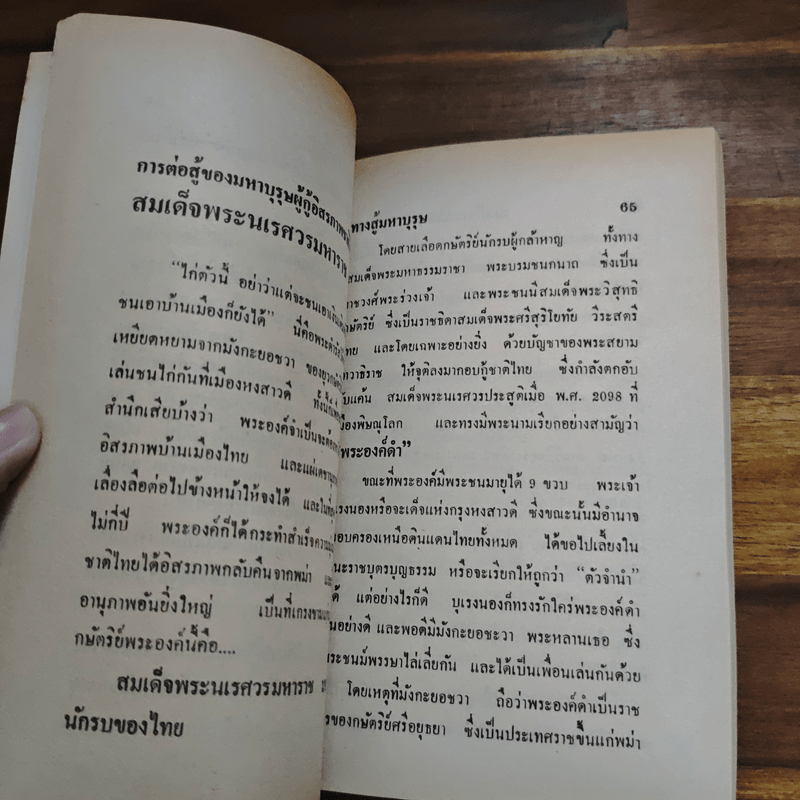 การต่อสู้ของมหาบุรุษผู้กู้อิสรภาพ
สมเด็จพระนเรศวรมหาราช
"ไก่ตัวนี้ อย่าว่าแต่จะชนเอาเงิน
ชนเอาบ้านเมืองก็ยังได้" นี่คือพระดำรัส
เหยียดหยามจากมังกะยอชวา ของ
เล่นชนไก่กันที่เมืองหงสาวดี ทั้งนี้
สำนึกเสียบ้างว่า พระองค์จำเป็นจะต้อง
อิสรภาพบ้านเมืองไทย และแผ่เดชา
เลื่องลือต่อไปข้างหน้าให้จงได้ และใน
ไม่กี่ปี พระองค์ก็ได้กระทำสำเร็จ
ชาติไทยได้อิสรภาพกลับคืนจากพม่า
อานุภาพอันยิ่งใหญ่ เป็นที่เกรงขาม
กษัตริย์พระองค์นี้คือ....
สมเด็จพระนเรศวรมหาราช
นักรบของไทย
ทางสู้มหาบุรุษ 65
โดยสายเลือดกษัตริย์นักรบผู้กล้าหาญ ทั้งทาง
สมเด็จพระมหาธรรมราชา พระบรมชนกนาถ ซึ่งเป็น
ราชวงศ์พระร่วงเจ้า และพระชนนีสมเด็จพระวิสุทธิ
กษัตริย์ ซึ่งเป็นราชธิดาสมเด็จพระศรีสุริโยทัย วีระสตรี
ไทย และโดยเฉพาะอย่างยิ่ง ด้วยบัญชาของพระสยาม
เทวาธิราช ให้จุติลงมากอบกู้ชาติไทย ซึ่งกำลังตกอับ
คับแค้น สมเด็จพระนเรศวรประสูติเมื่อ พ.ศ. 2098 ที่
เมืองพิษณุโลก และทรงมีพระนามเรียกอย่างสามัญว่า
"พระองค์ดำ"
ขณะที่พระองค์มีพระชนมายุได้ 9 ขวบ พระเจ้า
บุเรงนองหรือจะเด็จแห่งกรุงหงสาวดี ซึ่งขณะนั้นมีอำนาจ
ครอบครองเหนือดินแดนไทยทั้งหมด ได้ขอไปเลี้ยงใน
ฐานะราชบุตรบุญธรรม หรือจะเรียกให้ถูกว่า "ตัวจำนำ"
ก็ได้ แต่อย่างไรก็ดี บุเรงนองก็ทรงรักใคร่พระองค์ดำ
เป็นอย่างดี และพอดีมีมังกะยอชะวา พระหลานเธอ ซึ่ง
พระชนม์พรรษาไล่เลี่ยกัน และได้เป็นเพื่อนเล่นกันด้วย
โดยเหตุที่มังกะยอชวา ถือว่าพระองค์ดำเป็นราช
ของกษัตริย์ศรีอยุธยา ซึ่งเป็นประเทศราชขึ้นแก่พม่า